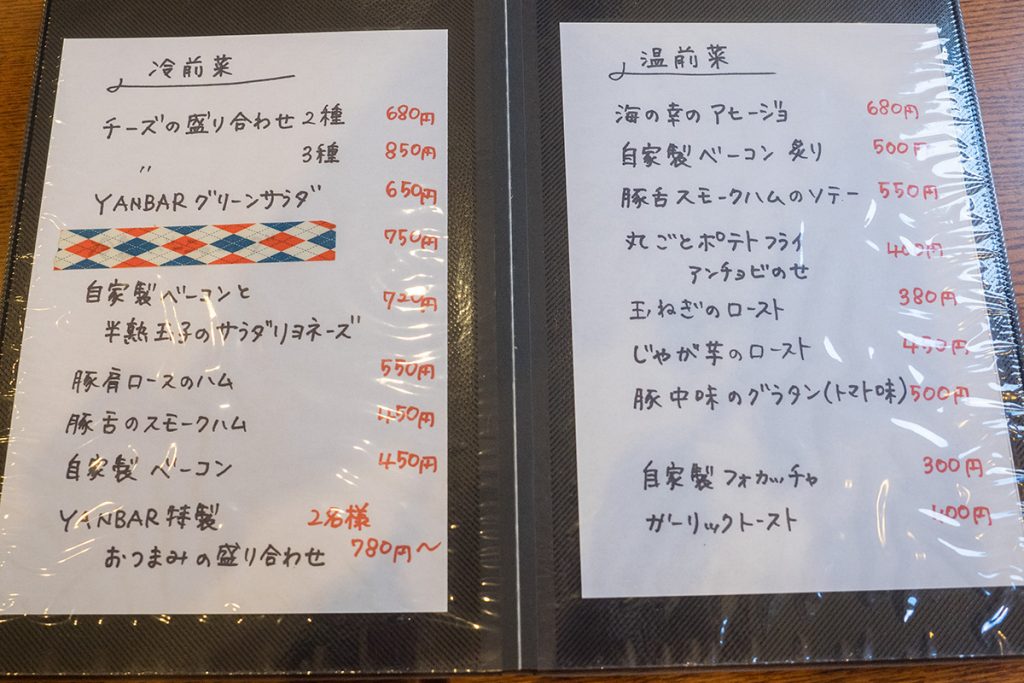 冷前菜
チーズの盛り合わせ2種 680円
〃 3種 850円
YANBARグリーンサラダ 650円
750円
自家製ベーコンと 720円
半熟玉子のサラダリヨネーズ
豚肩ロースのハム 550円
豚舌のスモークハム 450円
自家製ベーコン 450円
YANBAR特製 2名様
おつまみの盛り合わせ 780円～
温前菜
海の幸のアヒージョ 680円
自家製ベーコン 炙り 500円
豚舌スモークハムのソテー 550円
丸ごとポテトフライ 400円
アンチョビのせ
玉ねぎのロースト 380円
じゃが芋のロースト 450円
豚中味のグラタン(トマト味) 500円
自家製フォカッチャ 300円
ガーリックトースト 400円